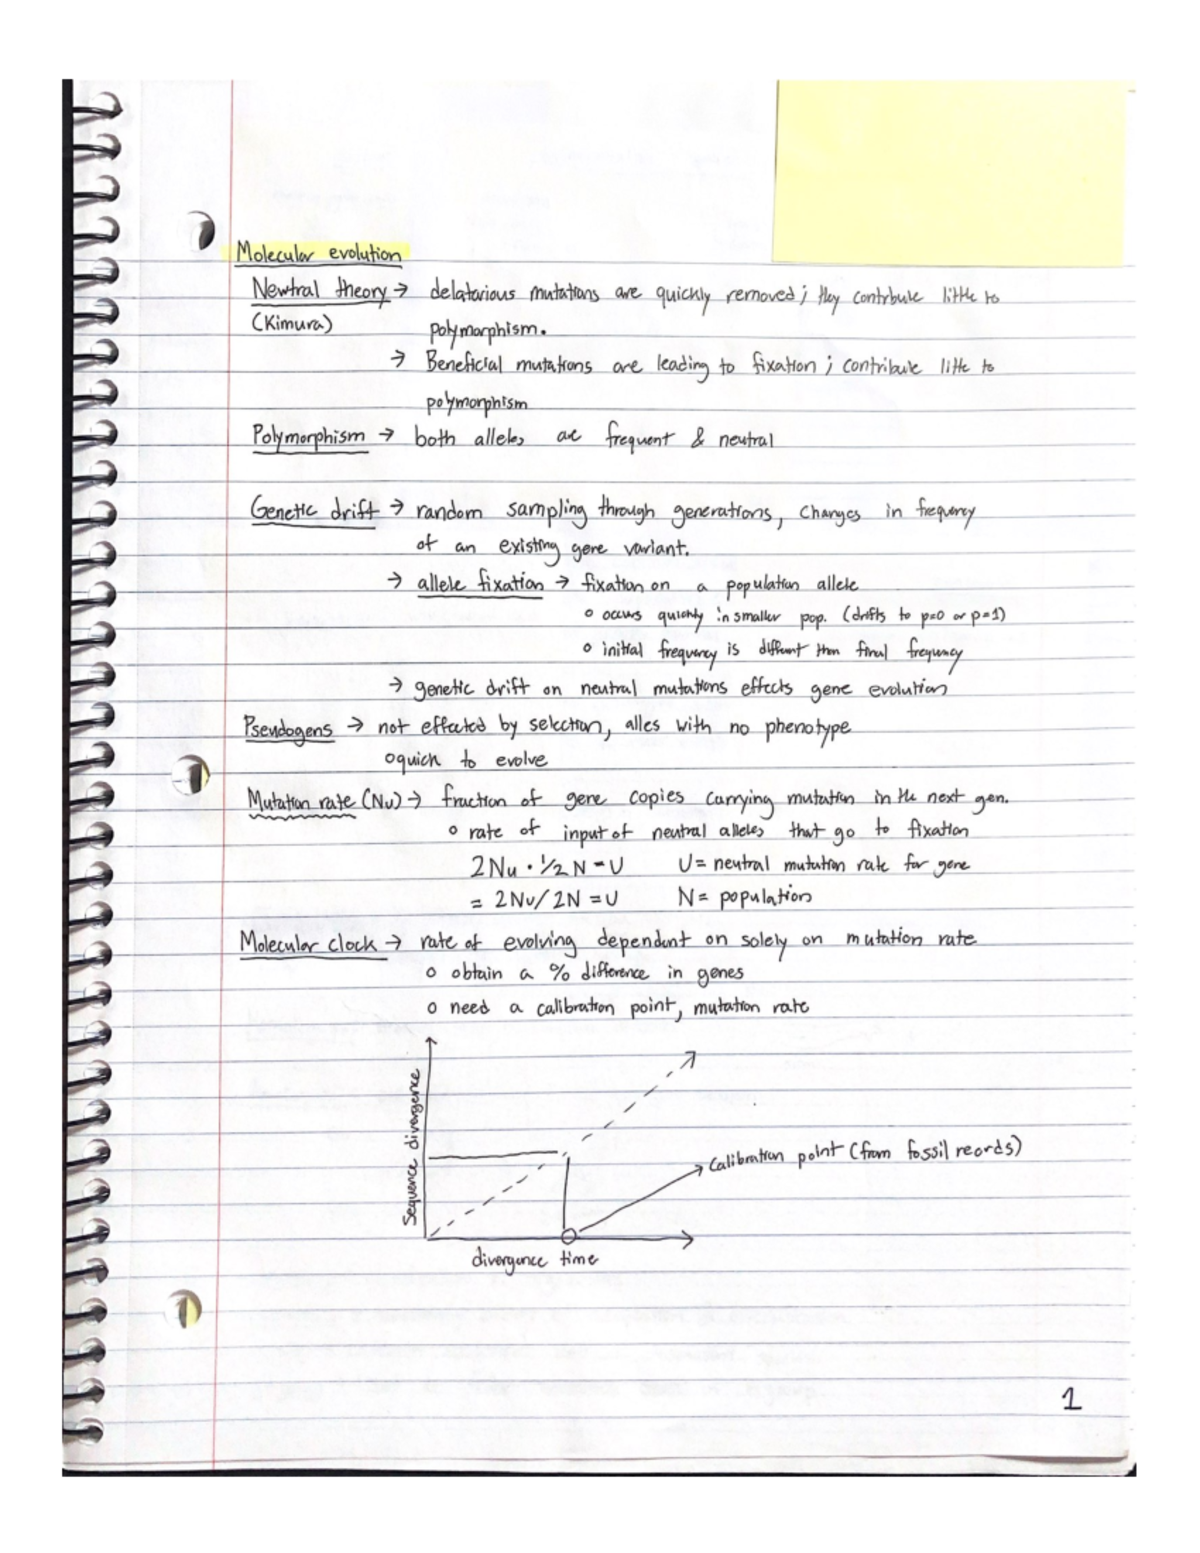 Molecular evolution
Newtral theory → delatarious mutations are quickly removed; they contribute little to
(Kimura) polymorphism.
→ Beneficial mutations are leading to fixation; contribute little to
polymorphism
Polymorphism → both alleles are frequent & neutral
Genetic drift → random sampling through generations, changes in frequency
of an existing gene variant.
→ allele fixation → fixation on a population allele
o occurs quickly in smaller pop. (drifts to p=0 or p=1)
o initial frequency is different than final frequency
→ genetic drift on neutral mutations effects gene evolution
Pseudogens → not effected by selection, alles with no phenotype
o quick to evolve
Mutation rate (Nu) → fraction of gene copies carrying mutation in the next gen.
o rate of input of neutral alleles that go to fixation
2Nu · 1/2N = U U = neutral mutation rate for gene
= 2Nu/2N = U N = population
Molecular clock → rate of evolving dependent on solely on mutation rate
o obtain a % difference in genes
o need a calibration point, mutation rate
Sequence divergence
Calibration point (from fossil reords)
divergence time
1